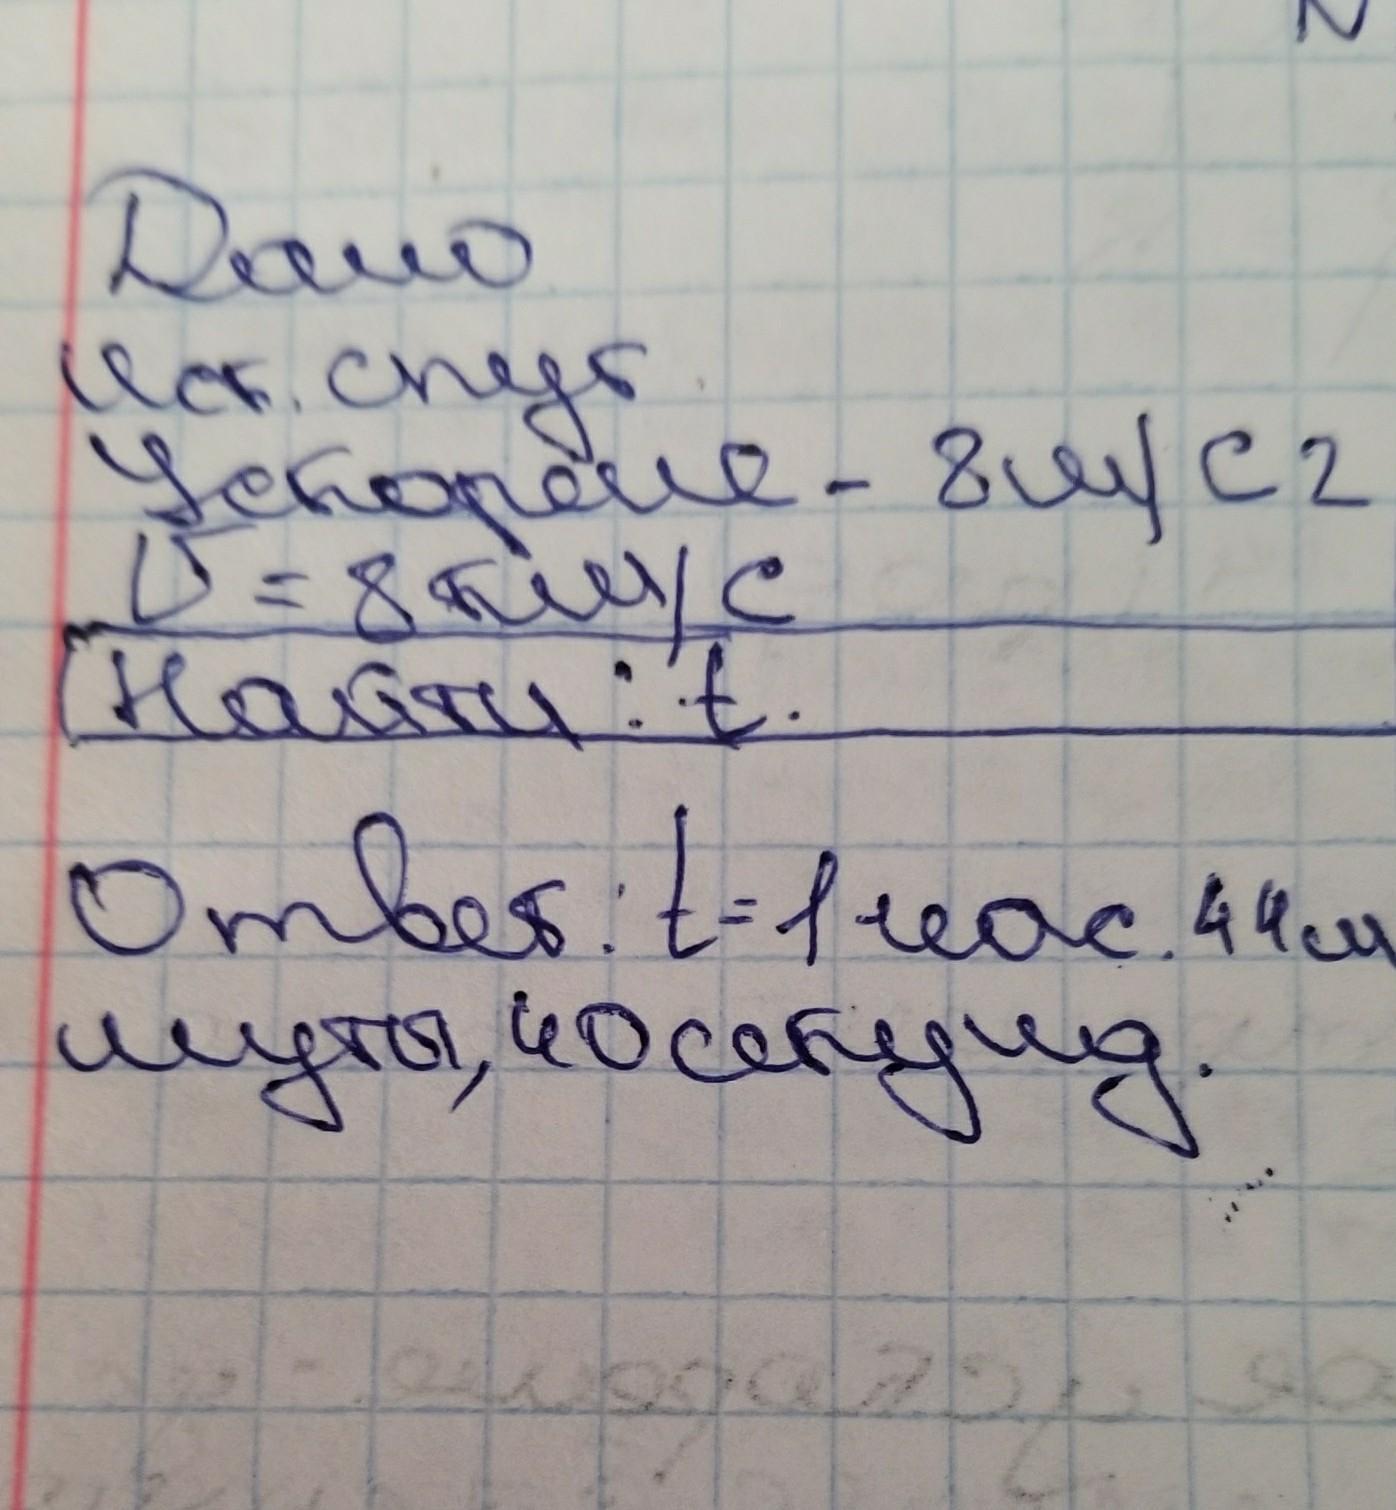 Дано
Иск. спут
Ускорение - 8м/с2
V = 8 км/с
Найти: t.
Ответ: t = 1 час. 44 м
инуты, 40 секунд.